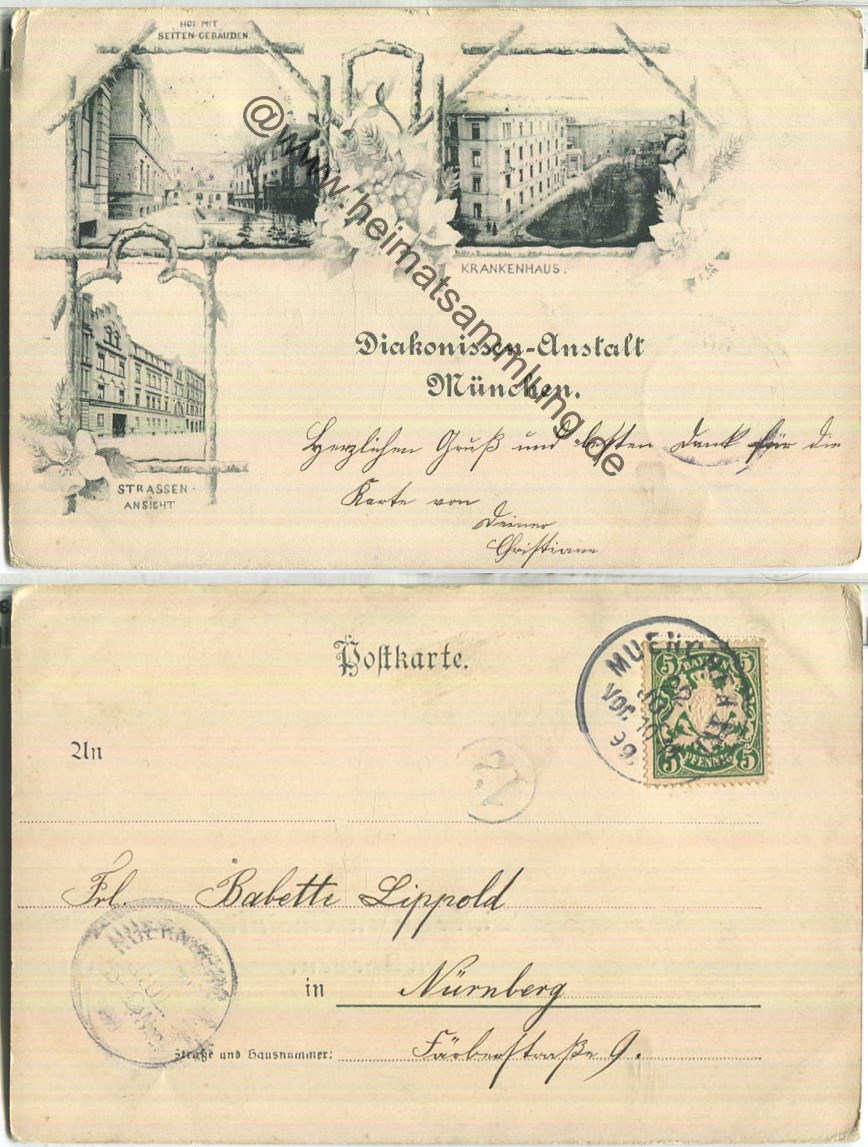 HOF MIT
SEITEN-GEBÄUDEN.
KRANKENHAUS.
STRASSEN-
ANSICHT
Diakonissen-Anstalt
München.
Herzlichen Gruß und besten Dank für die
Karte von
Deiner
Christiane
@www.heimatsammlung.de
Postkarte.
MUENCHEN
Vor. 10-11
99.
5 BAYERN 5
5 PFENNIG 5
An
Frl. Babette Lippold
in Nürnberg
Straße und Hausnummer: Färberstraße 9.
NUERNBERG